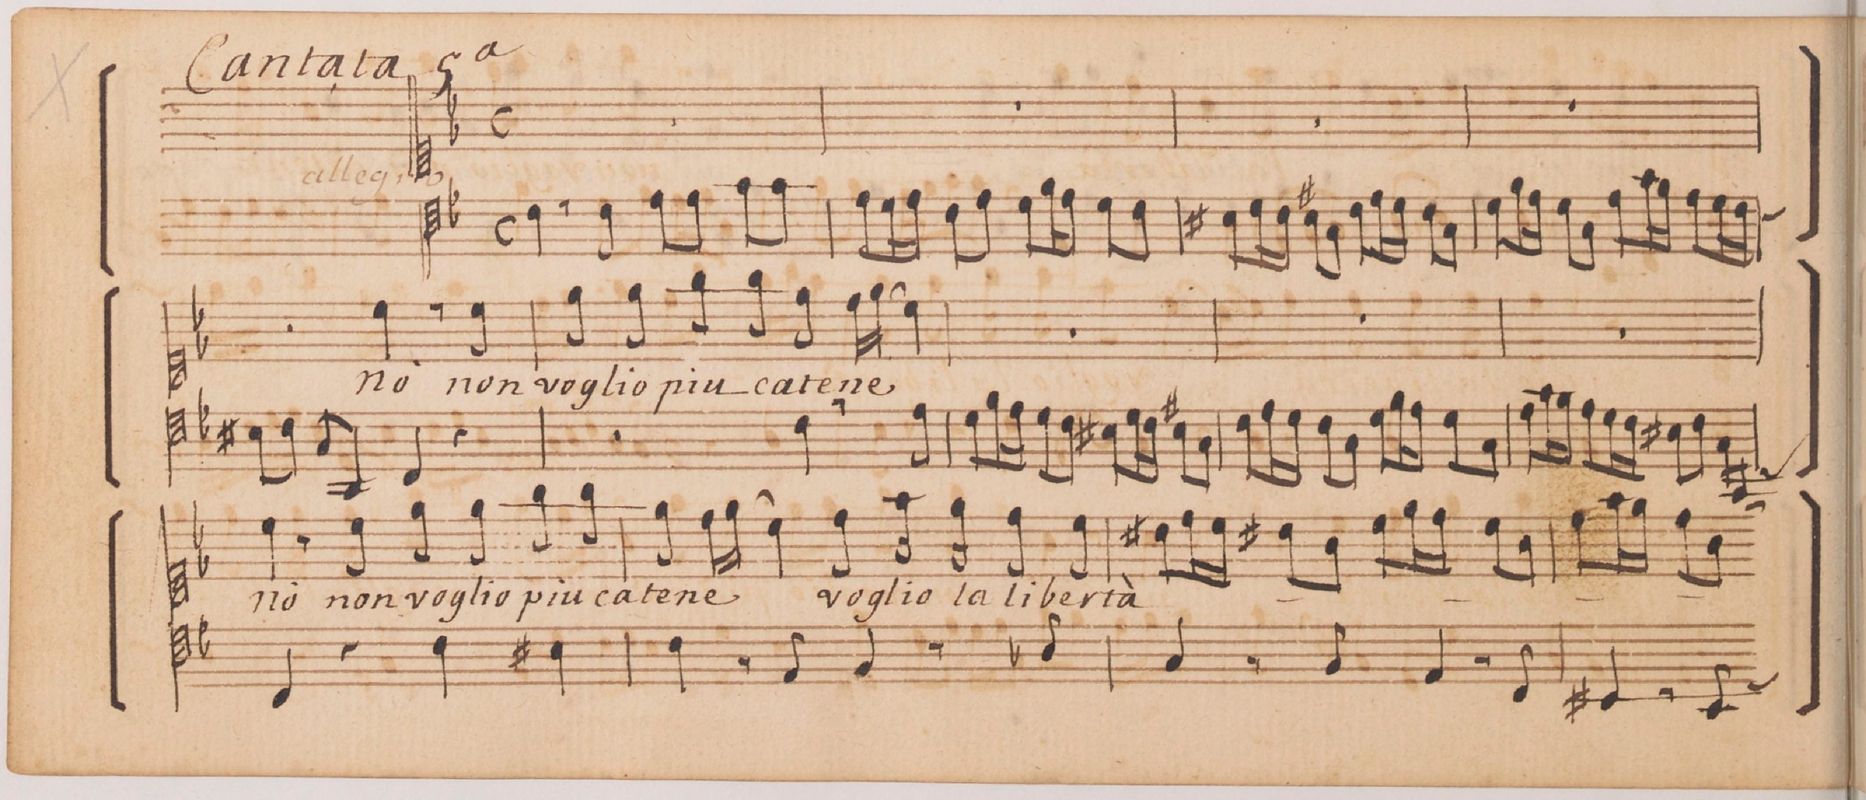 Cantata 5a
allegro
nò non voglio piu catene
nò non voglio piu catene voglio la libertà